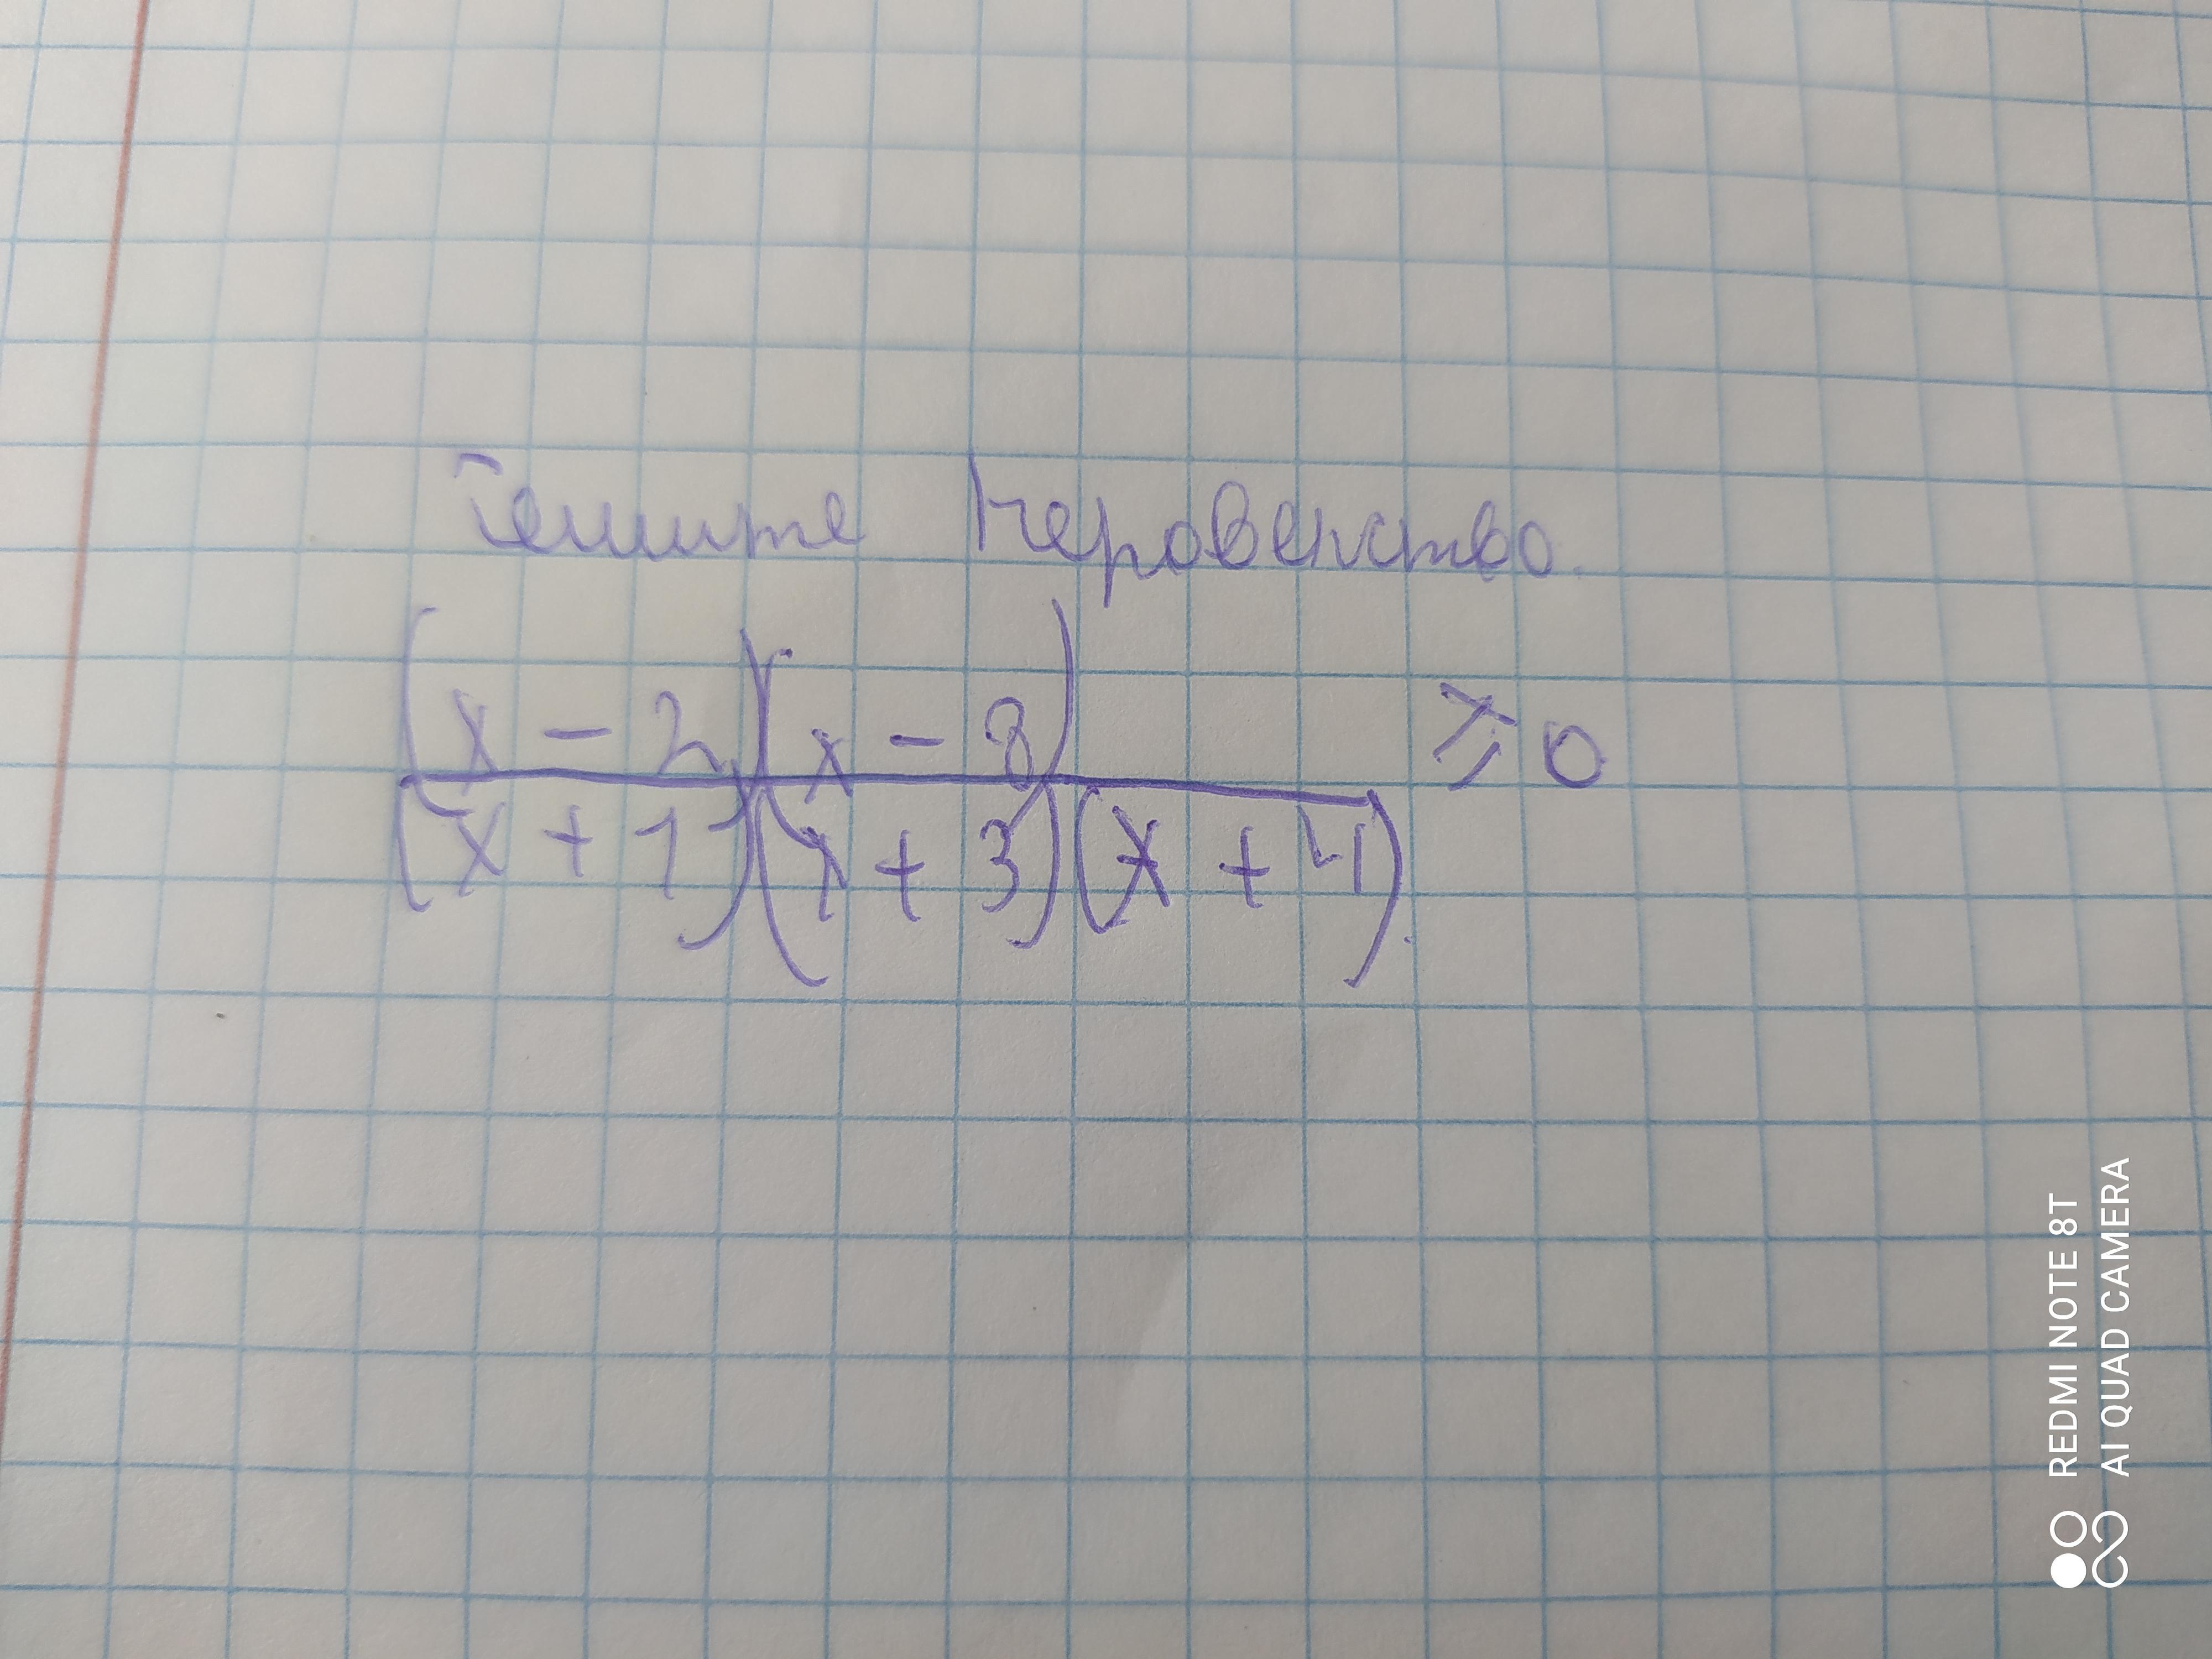 Решите неравенство.
(x - 2)(x - 8)
(x + 1)(x + 3)(x + 4) ⩾ 0
REDMI NOTE 8T
AI QUAD CAMERA